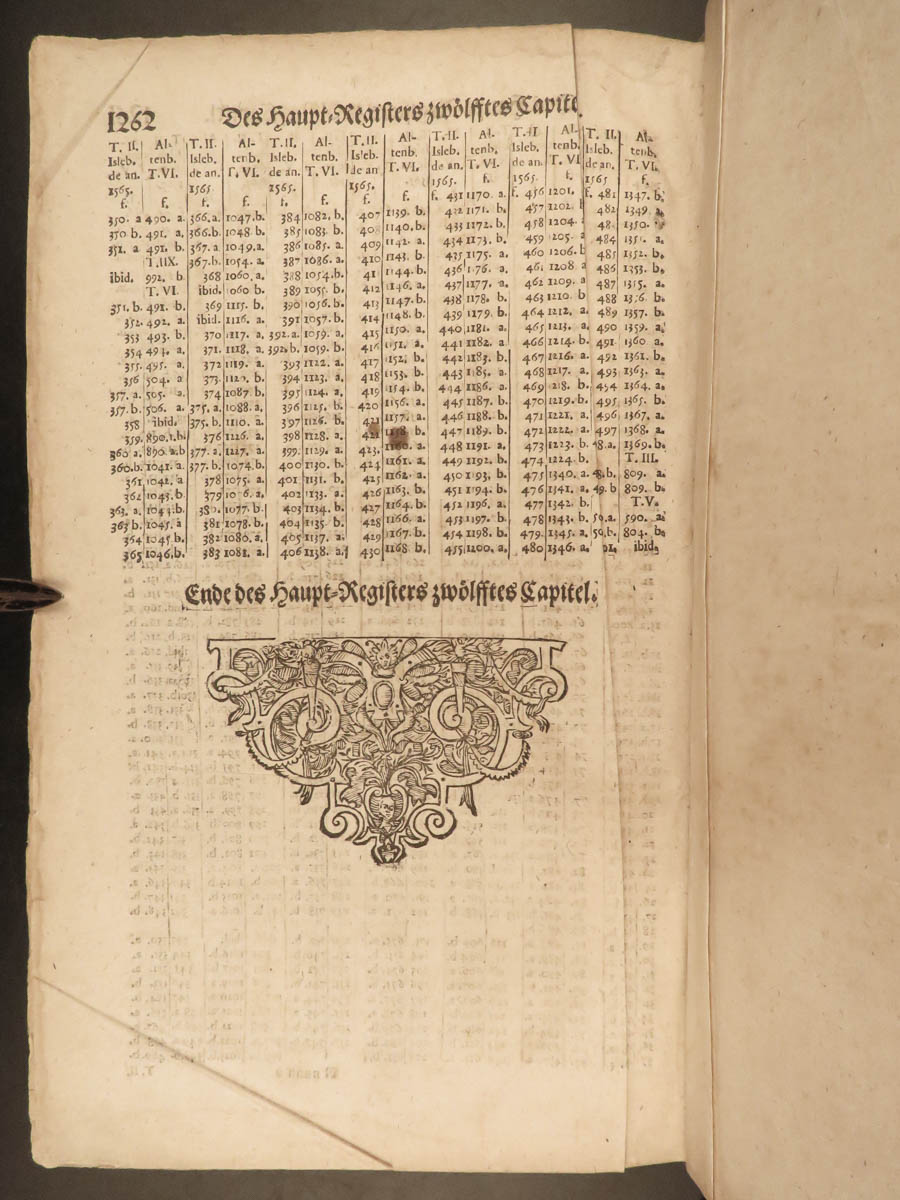 1262 Des Haupt-Registers zwölfftes Capite
T. II. Al- T. II. Al- T. II. Al- T. II. Al- T. II. Al- T. II Al- T. II. Al-
Isleb. tenb. Isleb. tenb. Isleb. tenb. Isleb. tenb. Isleb. tenb. Isleb. tenb. Isleb. tenb.
de an. T. VI. de an. T. VI. de an. T. VI. de an T. VI. de an. T. VI. de an. T. VI de an. T. VI.
1565. 1565 1565. 1565. 1565. 1565. 1565
f. f. f. f. f. f. f. f. f. f. f.
350. a 490. a. 366.a. 1047.b. 384 1082. b. 407 1139. b. f. 431 1170. a. f. 456 1201. f. 481 1347. b.
350 b. 491. a. 366.b. 1048. b. 385 1083. b. 408 1140. b. 432 1171. b. 457 1202. 482 1349 a.
351. a 491. b. 367. a 1049.a. 386 1085. a. 409 1142. a. 433 1172. b. 458 1204. 48 1350.
T.IIX. 367.b. 1054. a. 387 1086. a. 410 1143. b. 434 1173. b. 459 1205. a 484 1351. a.
ibid. 992. b. 368 1060. a. 388 1054.b. 41 1144. b. 435 1175. a. 460 1206. b 485 1352. b.
T. VI. ibid. 1060 b. 389 1055. b. 412 1146. a. 436 1176. a. 461 1208 a 486 1353. b.
351. b. 491. b. 369 1115. b. 390 1056. b. 413 1147. b. 437 1177. a. 462 1209. a 487 1355. a.
352. 492. a. ibid. 1116. a. 391 1057. b. 414 1148. b. 438 1178. b. 463 1210 b 488 1356. b.
353 493. b. 370 1117. a. 392.a. 1059. a. 415 1150. a. 439 1179. b. 464 1212. a. 489 1357. b.
354 494. a. 371. 1118. a. 392.b. 1059. b. 416 1151. a. 440 1181. a. 465 1213. a. 490 1359. a.
355. 495. a. 372 1119. a. 393 1122. a. 417 1152. b. 441 1182. a. 466 1214. b. 491. 1360. a
356 504. a 373. 1120. b. 394 1123. a. 418 1153. b. 442 1183. b. 467 1216. a. 492 1361. b.
357. a. 505. a. 374 1087. b. 395 1124. a. 419 1154. b. 443 1185. a. 468 1217. a. 493 1363. a.
357. b. 506. a. 375. a. 1088. a. 396 1125. b. 420 1156. a. 444 1186. a. 469 1218. b. 494 1364. a.
358 ibid. 375. b. 1110. a. 397 1126. b. 421 1157. a. 445 1187. b. 470 1219. b. 495 1365. b.
359. 376 1226. a. 398 1128. a. 1158. b. 446 1188. b. 471 1221. a. 496 1367. a.
360 a. 890. a.b 377. a. 1227. a. 399. 1129. a. 423. 1160. a. 447 1189. b. 472 1222. a. 497 1368. a.
360.b. 1041. a. 377. b. 1074.b. 400 1130. b. 424 1161. a. 448 1191. a. 473 1223. b. 48.a. 1369. b.
361. 1042. a 378 1075. a. 401 1131. b. 425 1162. a. 449 1192. b. 474 1224. b. T. III.
362 1043. b. 379 10 6. a. 402 1133. a. 426 1163. b. 450 1193. b. 475 1340. a. 48.b. 809. a.
363. a. 1043.b. 380. 1077. b. 403 1134. b. 427 1164. b. 451 1194. b. 476 1341. a. 49. b 809. b.
363 b. 1045. a 381 1078. b. 404 1135. b. 428 1166. a. 452 1196. a. 477 1342. b. T.V.
364 1045.b. 382 1080. a. 405 1137. a. 429 1167. b. 453 1197. b. 478 1343. b. 59.a. 590. a.
365 1046.b. 383 1081. a. 406 1138. a. 430 1168. b. 454 1198. b. 479. 1345. a. 59.b. 804. b.
455 1200. a. 480 1346. a. 91. ibid.
Ende des Haupt-Registers zwölfftes Capitel.